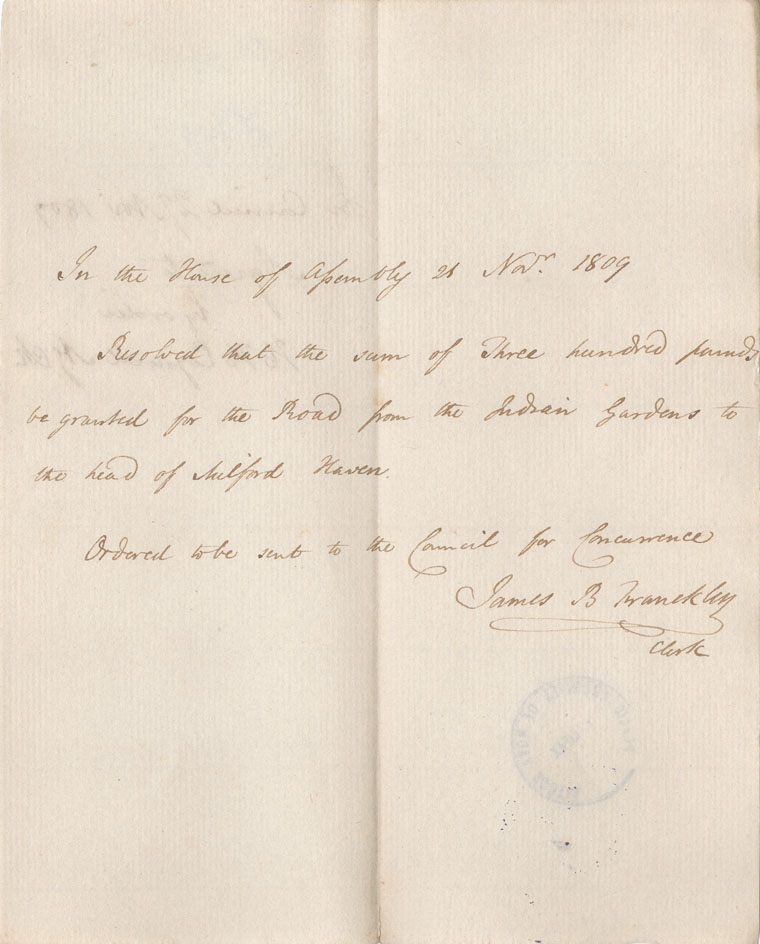 In the House of Assembly 21 Novr. 1809
Resolved that the sum of Three hundred pounds
be granted for the Road from the Indian Gardens to
the head of Milford Haven.
Ordered to be sent to the Council for Concurrence
James B Franckley
Clerk